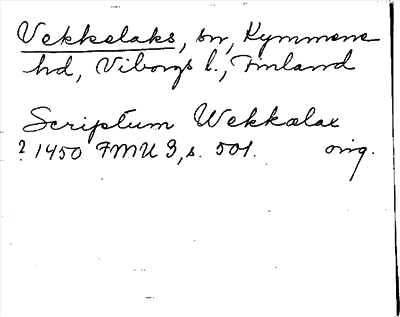 Vekkelaks, sn, Kymmene
hd, Viborgs l., Finland
Scriptum Wekkalax
? 1450 FMU 3, s. 501. orig.